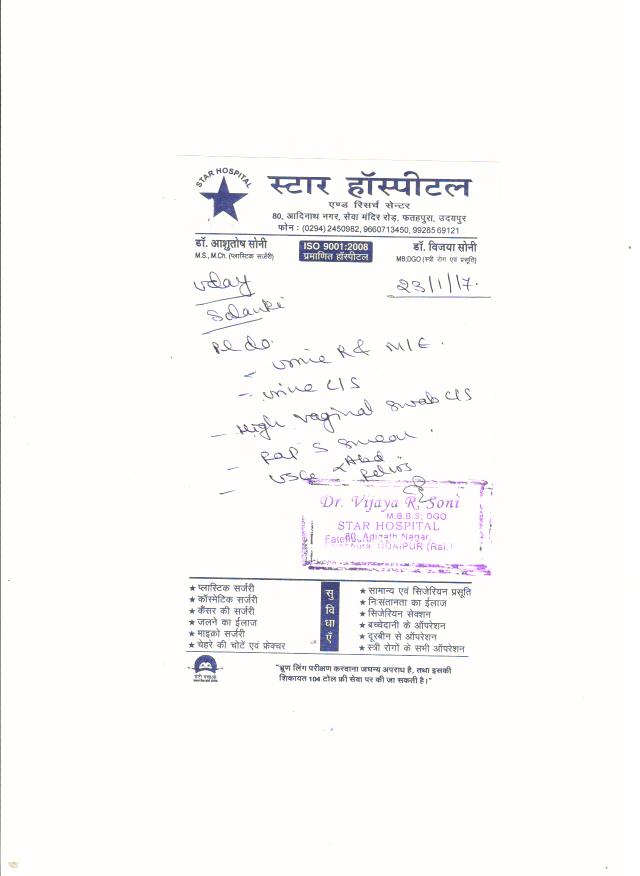 STAR HOSPITAL
स्टार हॉस्पीटल
एण्ड रिसर्च सेन्टर
80, आदिनाथ नगर, सेवा मंदिर रोड़, फतहपुरा, उदयपुर
फोन : (0294) 2450982, 9660713450, 9928569121
डॉ. आशुतोष सोनी ISO 9001:2008 डॉ. विजया सोनी
M.S., M.Ch. (प्लास्टिक सर्जरी) प्रमाणित हॉस्पीटल MB;DGO (स्त्री रोग एवं प्रसूति)
Uday 23/1/17.
Solanki
Pl do.
- urine R& M/E.
- urine C/S
- High vaginal swab C/S
- Pap S smear.
- USG Abd
& Pelvis
Dr. Vijaya R. Soni
M.B.B.S; DGO
STAR HOSPITAL
80, Adinath Nagar,
UDAIPUR (Raj.)
★ प्लास्टिक सर्जरी
★ कॉस्मेटिक सर्जरी
★ कैंसर की सर्जरी
★ जलने का ईलाज
★ माइक्रो सर्जरी
★ चेहरे की चोटें एवं फ्रेक्चर
सुविधाएँ
★ सामान्य एवं सिजेरियन प्रसूति
★ निःसंतानता का ईलाज
★ सिजेरियन सेक्शन
★ बच्चेदानी के ऑपरेशन
★ दूरबीन से ऑपरेशन
★ स्त्री रोगों के सभी ऑपरेशन
"भ्रूण लिंग परीक्षण करवाना जघन्य अपराध है, तथा इसकी
शिकायत 104 टोल फ्री सेवा पर की जा सकती है।"